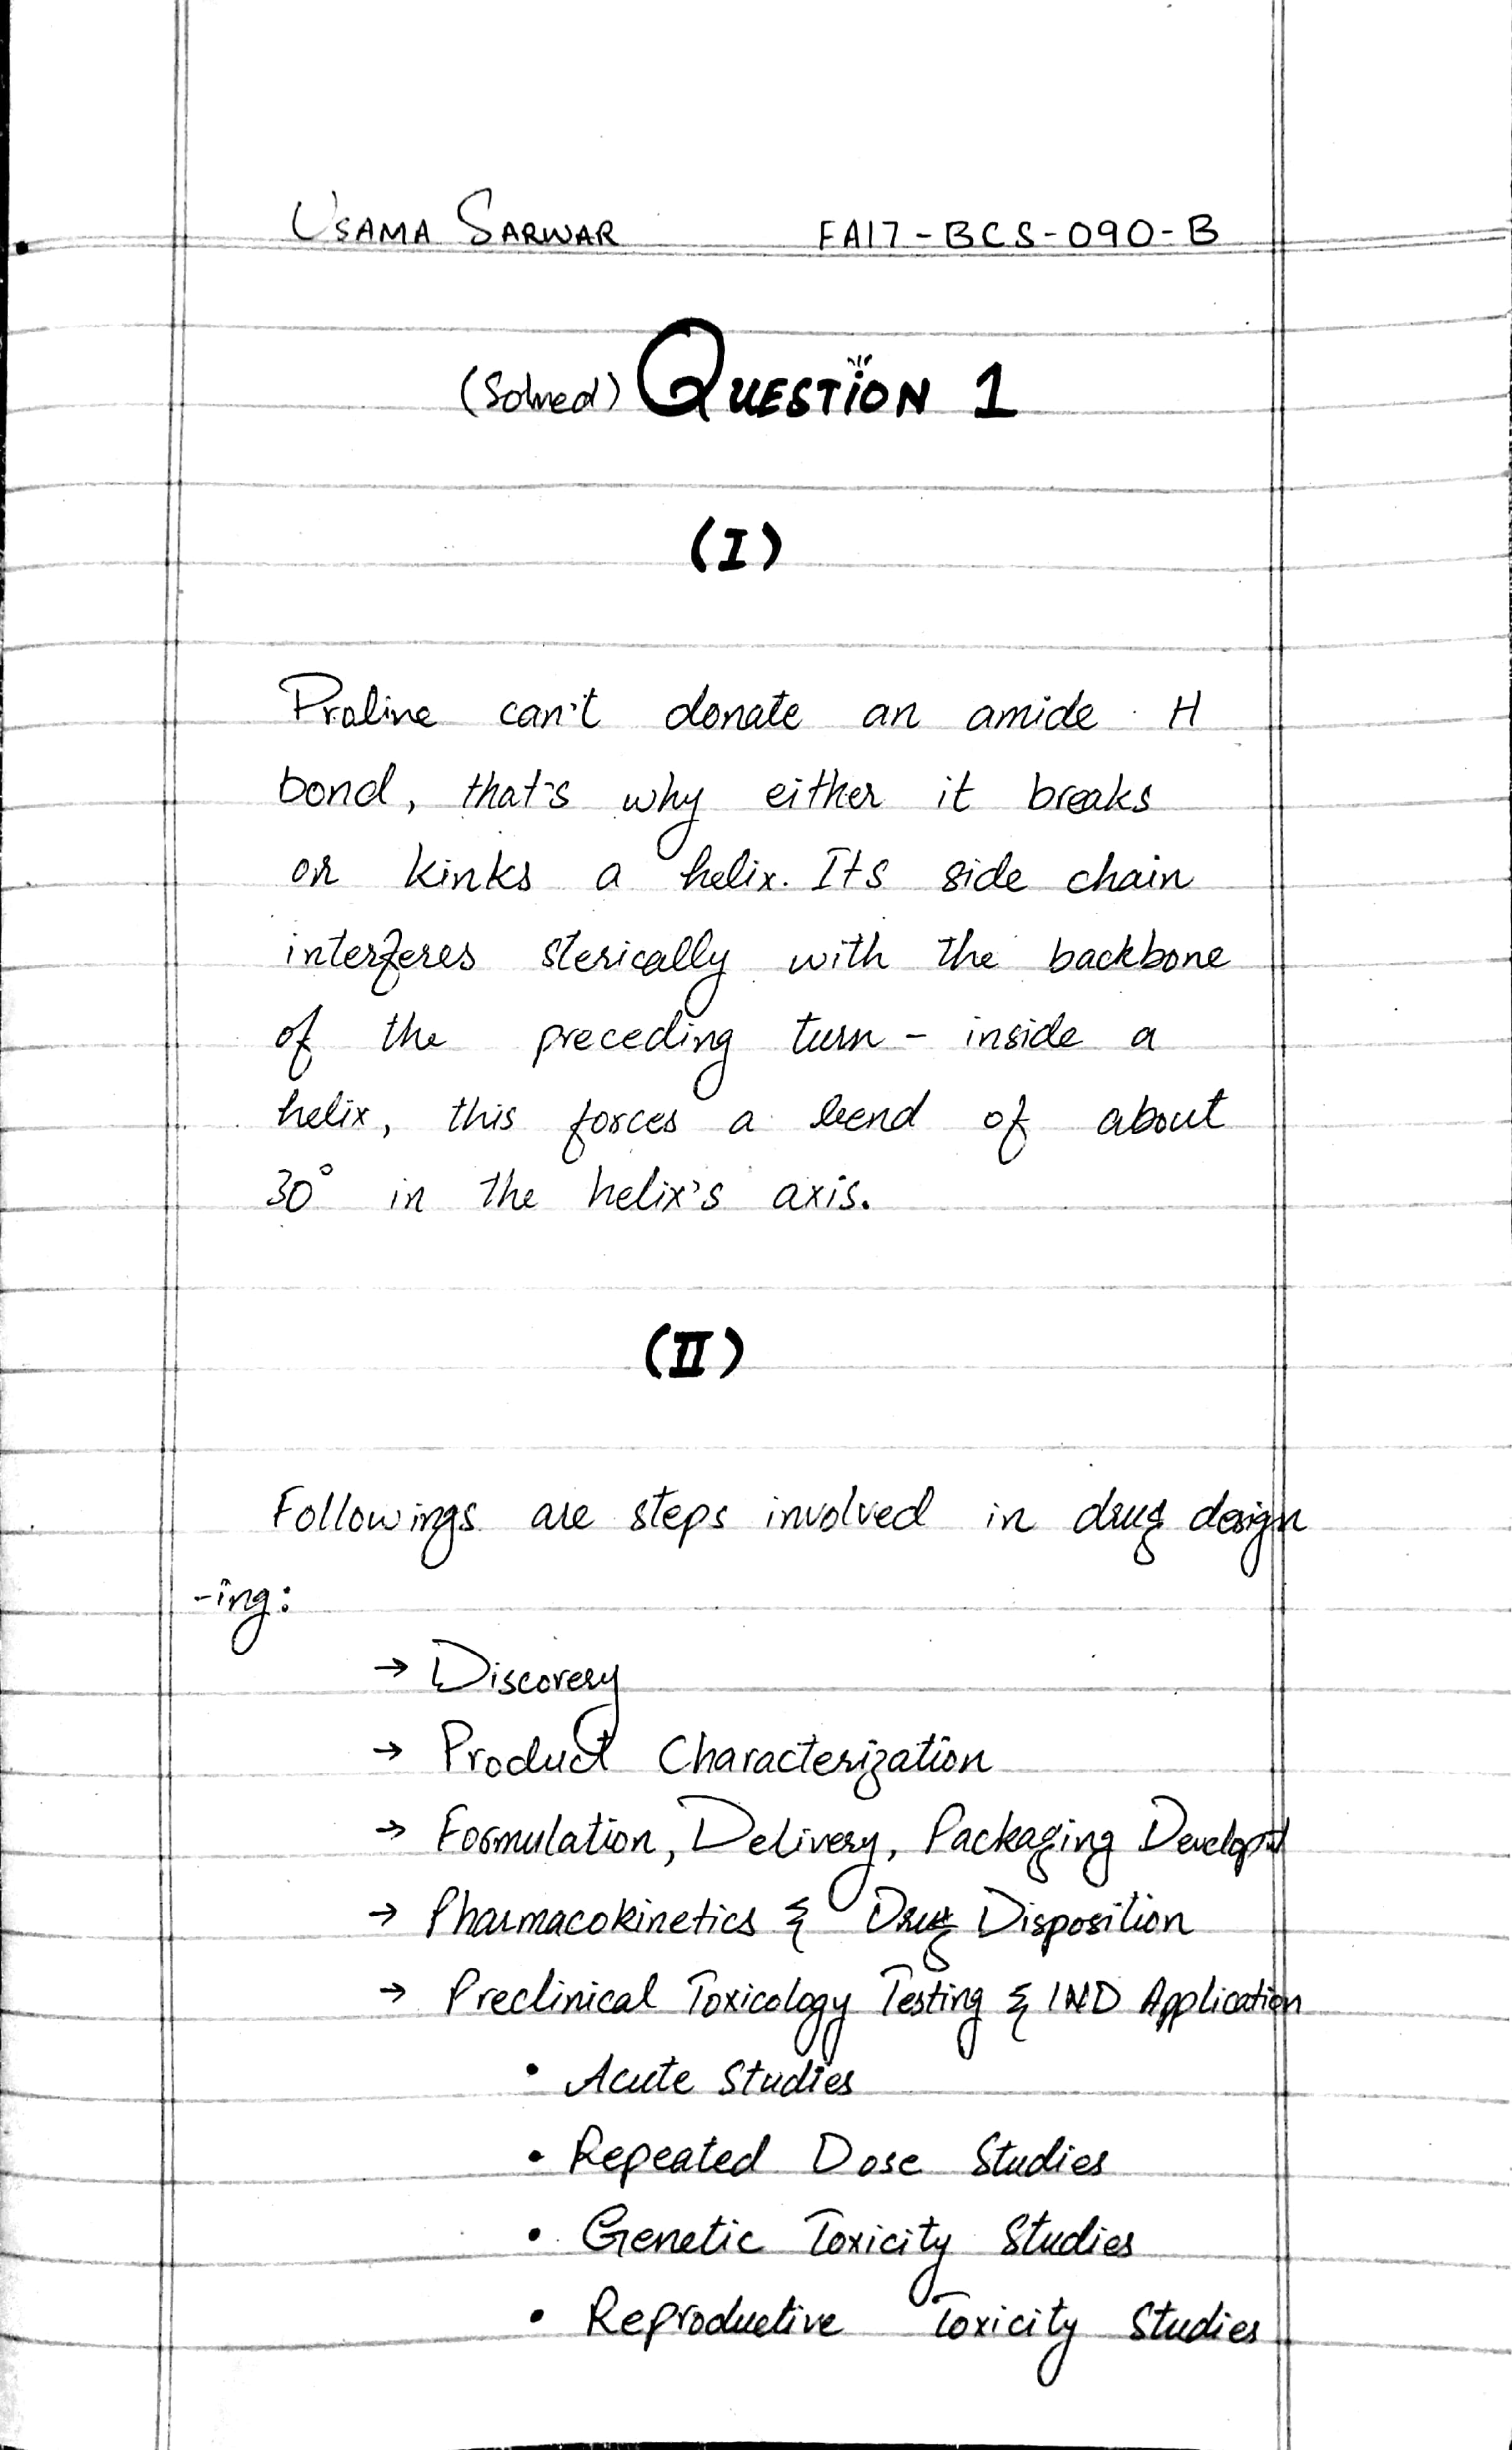 USAMA SARWAR FA17-BCS-090-B
(Solved) QUESTION 1
(I)
Proline can't donate an amide H
bond, that's why either it breaks
or kinks a helix. Its side chain
interferes sterically with the backbone
of the preceding turn - inside a
helix, this forces a bend of about
30° in the helix's axis.
(II)
Followings are steps involved in drug design
-ing:
→ Discovery
→ Product Characterization
→ Formulation, Delivery, Packaging Develop't
→ Pharmacokinetics & Drug Disposition
→ Preclinical Toxicology Testing & IND Application
• Acute Studies
• Repeated Dose Studies
• Genetic Toxicity Studies
• Reproductive Toxicity Studies